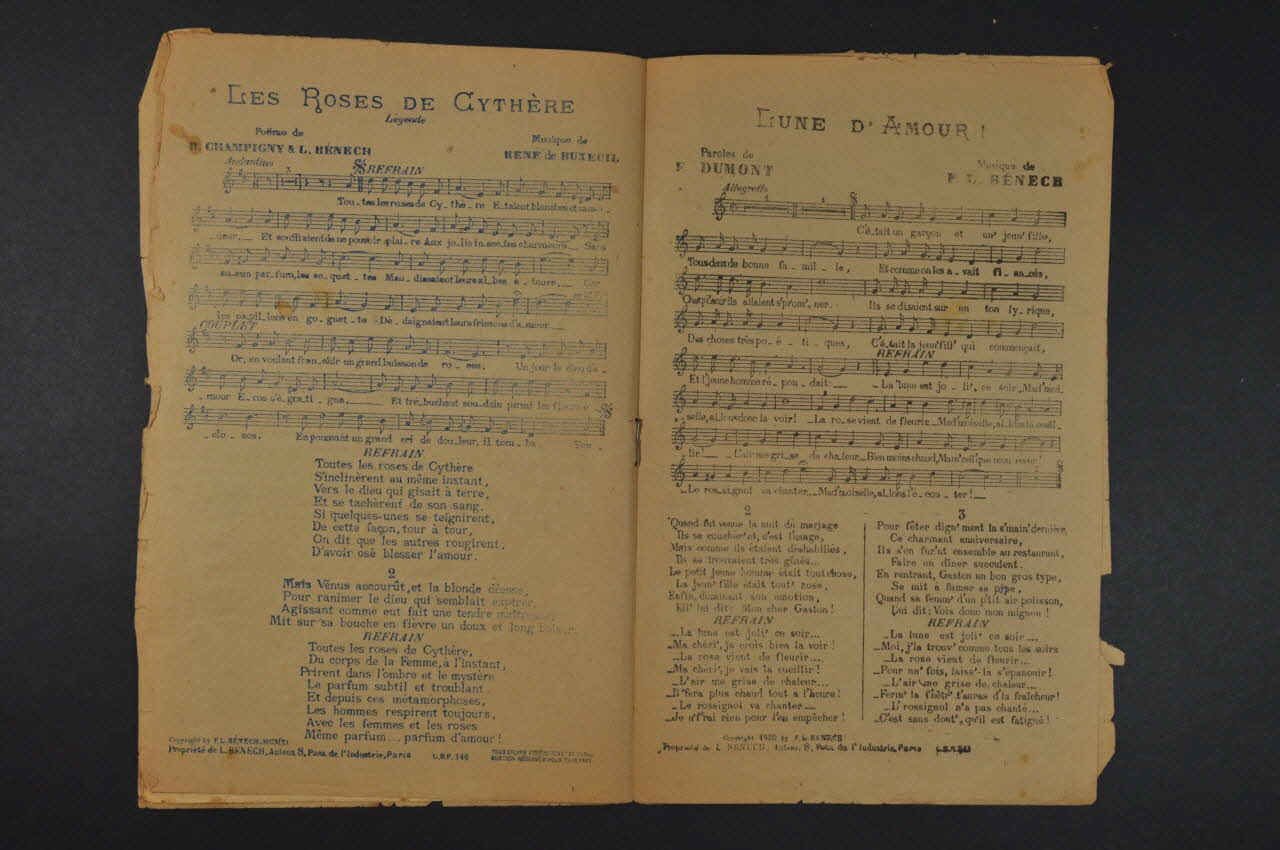 LES ROSES DE CYTHÈRE
Légende
Poëme de
R. CHAMPIGNY & L. BÉNECH
Musique de
RENÉ de BUXEUIL
Andantino
REFRAIN
Tou_tes les roses de Cy_thè_re E_taient blanches et sans o_
_deur Et souffraient de ne pouvoir plai_re Aux jo_lis in_sec_tes charmeurs Sans
au_cun par_fum, les co_quet_tes Mau_dissaient leurs al_bes a_tours Car
les pa_pil_lons en go_guet_te Dé_daignaient leurs frissons d'a_mour
COUPLET
Or, en voulant fran_chir un grand buisson de ro_ses. Un jour le dieu d'a_
_mour E_ros s'é_gra_ti_gna, Et tré_buchant sou_dain parmi les fleurs
_clo_ses. En poussant un grand cri de dou_leur, il tom_ba Tou_
REFRAIN
Toutes les roses de Cythère
S'inclinèrent au même instant,
Vers le dieu qui gisait à terre,
Et se tachèrent de son sang.
Si quelques-unes se teignirent,
De cette façon, tour à tour,
On dit que les autres rougirent,
D'avoir osé blesser l'amour.
2
Mais Vénus accourût, et la blonde déesse,
Pour ranimer le dieu qui semblait expirer,
Agissant comme eut fait une tendre maîtresse,
Mit sur sa bouche en fièvre un doux et long
REFRAIN
Toutes les roses de Cythère,
Du corps de la Femme, à l'instant,
Prirent dans l'ombre et le mystère
Le parfum subtil et troublant.
Et depuis ces métamorphoses,
Les hommes respirent toujours,
Avec les femmes et les roses
Même parfum... parfum d'amour!
Copyright by F. L. BÉNECH, MCMXI
Propriété de L. BÉNECH, Auteur, 8, Pass. de l'Industrie, Paris L.B.F. 146
LUNE D'AMOUR!
Paroles de
F. DUMONT
Musique de
F. L. BÉNECH
Allegretto
C'é_tait un garçon et un' jeun' fille,
Tous deux de bonne fa_mil_le, Et comme on les a_vait fi_an_cés,
Chaqu' soir ils allaient s'prom'_ner. Ils se disaient sur un ton ly_rique,
Des choses très po_é_ti_ques, C'é_tait la jeun' fill' qui commençait,
REFRAIN
Et l'jeune homme ré_pon_dait: _ La 'lune est jo_li', ce soir _ Mad'moi_
_selle, al_lons donc la voir! _ La ro_se vient de fleurir _ Mad'moiselle, al_lons la cueil_
lir! _ L'air me gri_se de cha_leur _ Bien moins chaud, Mam'zell' que mon cœur!
_ Le ros_signol va chanter _ Mad'moiselle, al_lons l'é_cou_ter! _
2
Quand fut venue la nuit du mariage
Ils se couchèr'nt, c'est l'usage,
Mais comme ils étaient déshabillés,
Ils se trouvaient très gênés...
Le petit jeune homme était tout chose,
La jeun' fille était tout' rose;
Enfin, dominant son émotion,
Ell' lui dit: Mon cher Gaston!
REFRAIN
_ La lune est joli' ce soir...
_ Ma chéri', je crois bien la voir!
_ La rose vient de fleurir...
_ Ma chéri', je vais la cueillir!
_ L'air me grise de chaleur...
_ Il f'ra plus chaud tout à l'heure!
_ Le rossignol va chanter _
_ Je n'f'rai rien pour l'en empêcher!
3
Pour fêter dign'ment la s'main' dernière,
Ce charmant anniversaire,
Ils s'en fur'nt ensemble au restaurant,
Faire un dîner succulent.
En rentrant, Gaston un bon gros type,
Se mit à fumer sa pipe,
Quand sa femm' d'un p'tit air polisson,
Lui dit: Vois donc mon mignon!
REFRAIN
_ La lune est joli' ce soir...
_ Moi, j'la trouv' comme tous les soirs
_ La rose vient de fleurir...
_ Pour un' fois, laiss'-la s'épanouir!
_ L'air me grise de chaleur...
_ Ferm' la f'nêtr' t'auras d'la fraîcheur!
_ L'rossignol n'a pas chanté...
_ C'est sans dout', qu'il est fatigué!
Copyright 1920 by F. L. BÉNECH
Propriété de L. BÉNECH, Auteur, 8, Pass. de l'Industrie, Paris